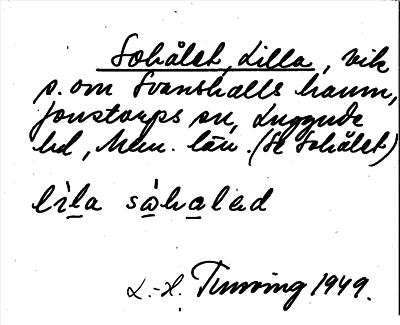 Sohålet, Lilla, vik
s. om Svanshalls hamn,
Jonstorps sn, Luggude
hd, Mlm. län. (Se Sohålet)
lìla sòhaləd
L.-H. Turning 1949.